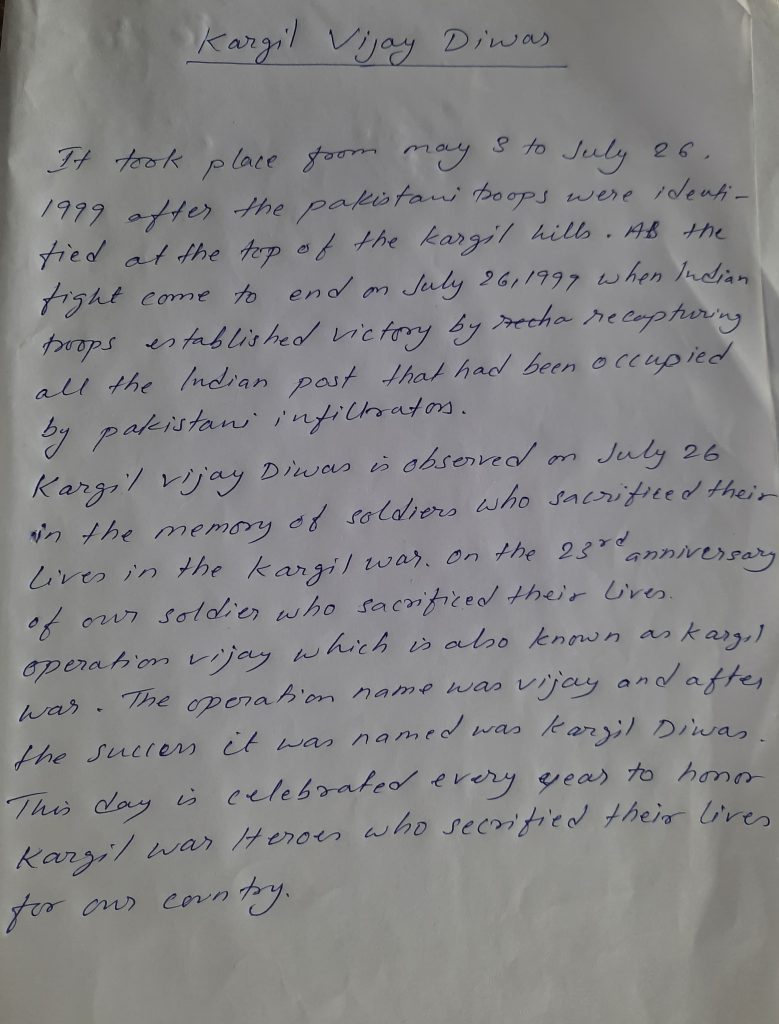 Kargil Vijay Diwas
It took place from may 3 to July 26,
1999 after the pakistani troops were identi-
fied at the top of the kargil hills. AB the
fight come to end on July 26, 1999 when Indian
troops established victory by recha recapturing
all the Indian post that had been occupied
by pakistani infiltrators.
Kargil vijay Diwas is observed on July 26
in the memory of soldiers who sacrificed their
lives in the kargil war. on the 23rd anniversary
of our soldier who sacrificed their lives.
operation vijay which is also known as kargil
war. The operation name was vijay and after
the success it was named was kargil Diwas.
This day is celebrated every year to honor
Kargil war Heroes who secrified their lives
for our country.